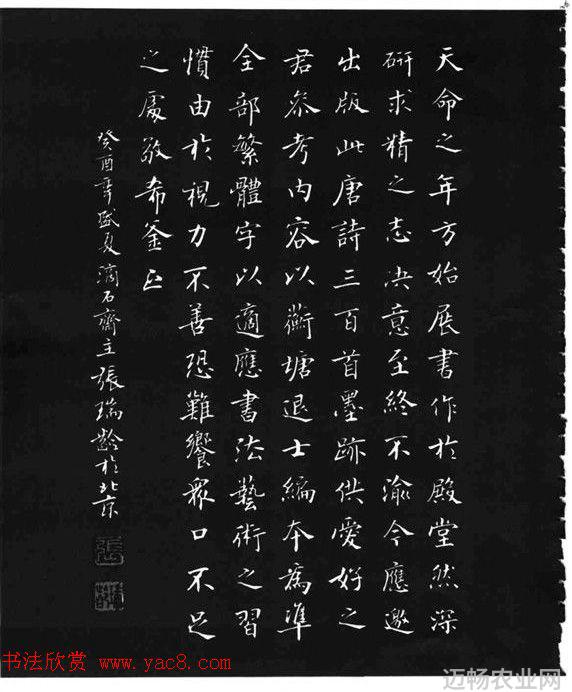 天命之年方始展書作於殿堂然深
研求精之志决意至終不渝今應邀
出版此唐詩三百首墨跡供愛好之
君參考内容以蘅塘退士編本為準
全部繁體字以適應書法藝術之習
慣由於視力不善恐難饗眾口不足
之處敬希鉴正
癸酉年盛夏滴石齋主張瑞齡於北京
书法欣赏 www.yac8.com
迈畅农业网